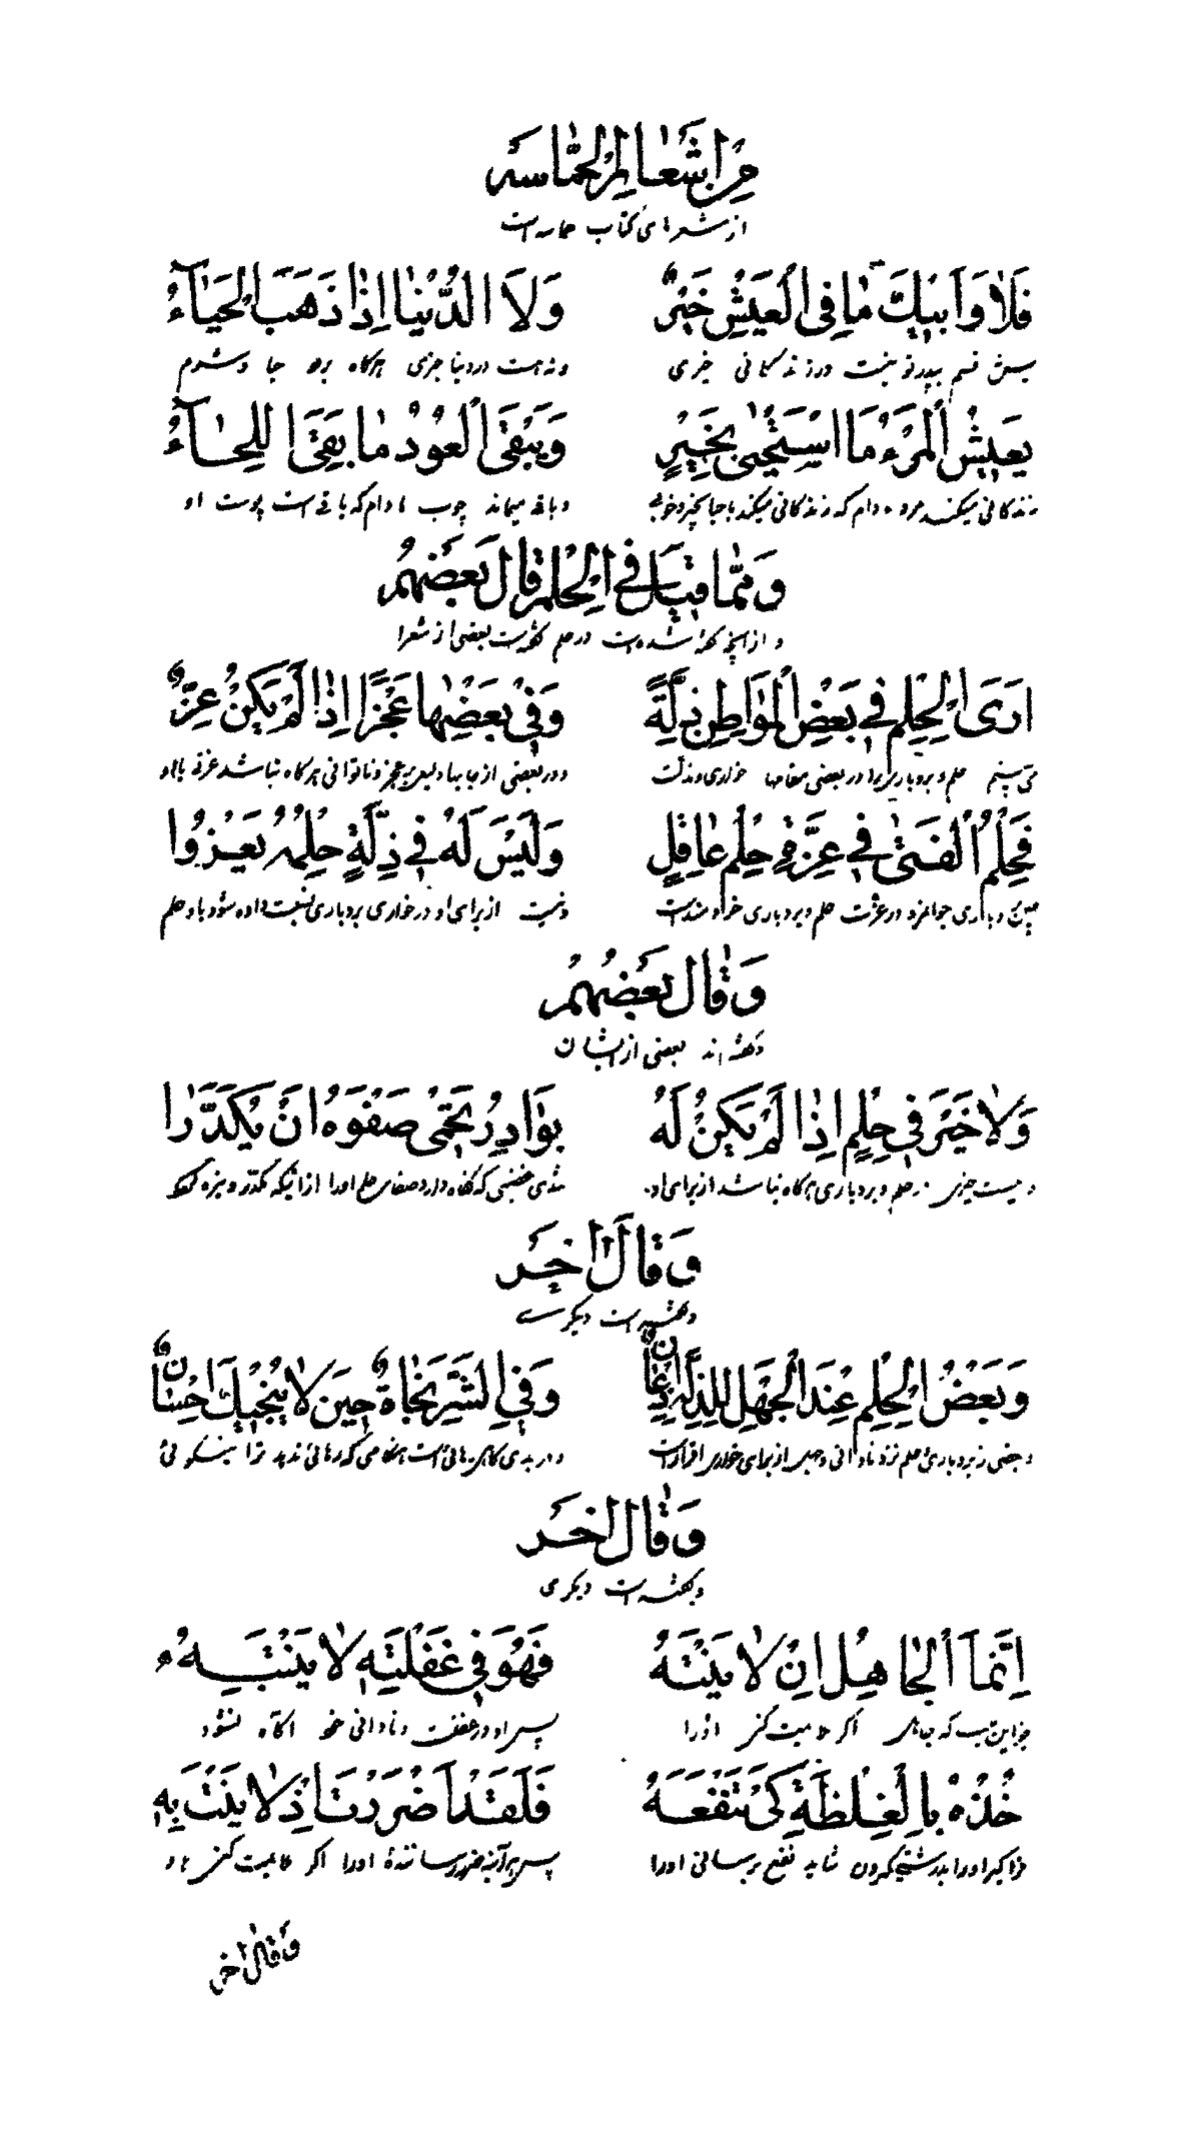 مِنْ اَشْعَارِ الْحَمَاسَه
از شعرهای کتاب حماسه است
فَلَاوَاَبیٖكَ مٰا فِی الْعَیْشِ خَیْرٌ وَلَا الدُّنْیٰا اِذٰا ذَهَبَ الْحَیٰآءُ
پس نه قسم بپدر تو نیست در زندکانی خیری و نه هست در دنیا چیزی هرکاه برود حیا و شرم
یَعیٖشُ الْمَرْءُ مَا اسْتَحْیٰی بِخَیْرٍ وَیَبْقَی الْعُوْدُ مٰا بَقِیَ اللِّحٰآءُ
زندکانی میکند مرد مادام که زندکانی میکند با حیا بخیر و خوبی و باقی میماند چوب مادام که باقی است پوست او
وَمِمّٰا قیٖلَ فِی الْحِلْمِ قٰالَ بَعْضُهُمْ
و از آنچه گفته شده است در حلم گفته است بعضی از شعرا
اَرَی الْحِلْمَ فیٖ بَعْضِ الْمَوٰاطِنِ ذِلَّةً وَفیٖ بَعْضِهٰا عَجْزًا اِذٰا لَمْ یَكُنْ عِزٌّ
می بینم حلم و بردباری را در بعضی مقامها خواری و مذلت و در بعضی از جایها دلیل بر عجز و ناتوانی هرکاه نباشد عزت با او
فَحِلْمُ الْفَتیٰ فیٖ عِزَّةٍ حِلْمُ عٰاقِلٍ وَلَیْسَ لَهُ فیٖ ذِلَّةٍ حِلْمُهُ یَعْزُوا
پس بردباری جوانمرد در عزت حلم و بردباری خردمند است و نیست از برای او در خواری بردباری نسبت داده شود باو حلم
وَقٰالَ بَعْضُهُمْ
و گفته اند بعضی از ایشان
وَلٰا خَیْرَ فیٖ حِلْمٍ اِذٰا لَمْ یَكُنْ لَهُ بَوٰادِرُ تَحْمیٖ صَفْوَهُ اَنْ یُكَدَّرٰا
و نیست چیزی در حلم و بردباری هرکاه نباشد از برای او تندی خشمی که نگاه دارد صفای حلم او را از اینکه مکدر و تیره کند
وَقٰالَ اٰخَر
و گفته است دیگری
وَبَعْضُ الْحِلْمِ عِنْدَ الْجَهْلِ لِلذِّلَّةِ اِذْعٰانٌ وَفِی الشَّرِّ نَجٰاةٌ حیٖنَ لٰا یُنْجیٖكَ اِحْسٰانٌ
و بعضی از بردباری و حلم نزد نادانی و جهل از برای خواری اقرار است و در بدی گاهی رهائی است هنگامی که رهائی ندهد ترا نیکوئی
وَقٰالَ اٰخَر
و گفته است دیگری
اِنَّمَا الْجٰاهِلُ اِنْ لٰا یَنْتَهُ فَهُوَ فیٖ غَفْلَتِهٖ لٰا یَنْتَبِهُ
جز این نیست که جاهل اکر ملامت نکنی او را پس او در غفلت و نادانی خود اگاه نشود
خُذْهُ بِالْغِلْظَةِ كَیْ تَنْفَعَهُ فَلَقَدْ اَضْرَرْتَ اِذْ لٰا یَنْتَبِهٖ
فراکیر او را بدرشتی کردن شاید نفع برسانی او را پس هرآینه ضرر رساننده او را اکر ملامت نکنی
وَقٰالَ اٰخَر